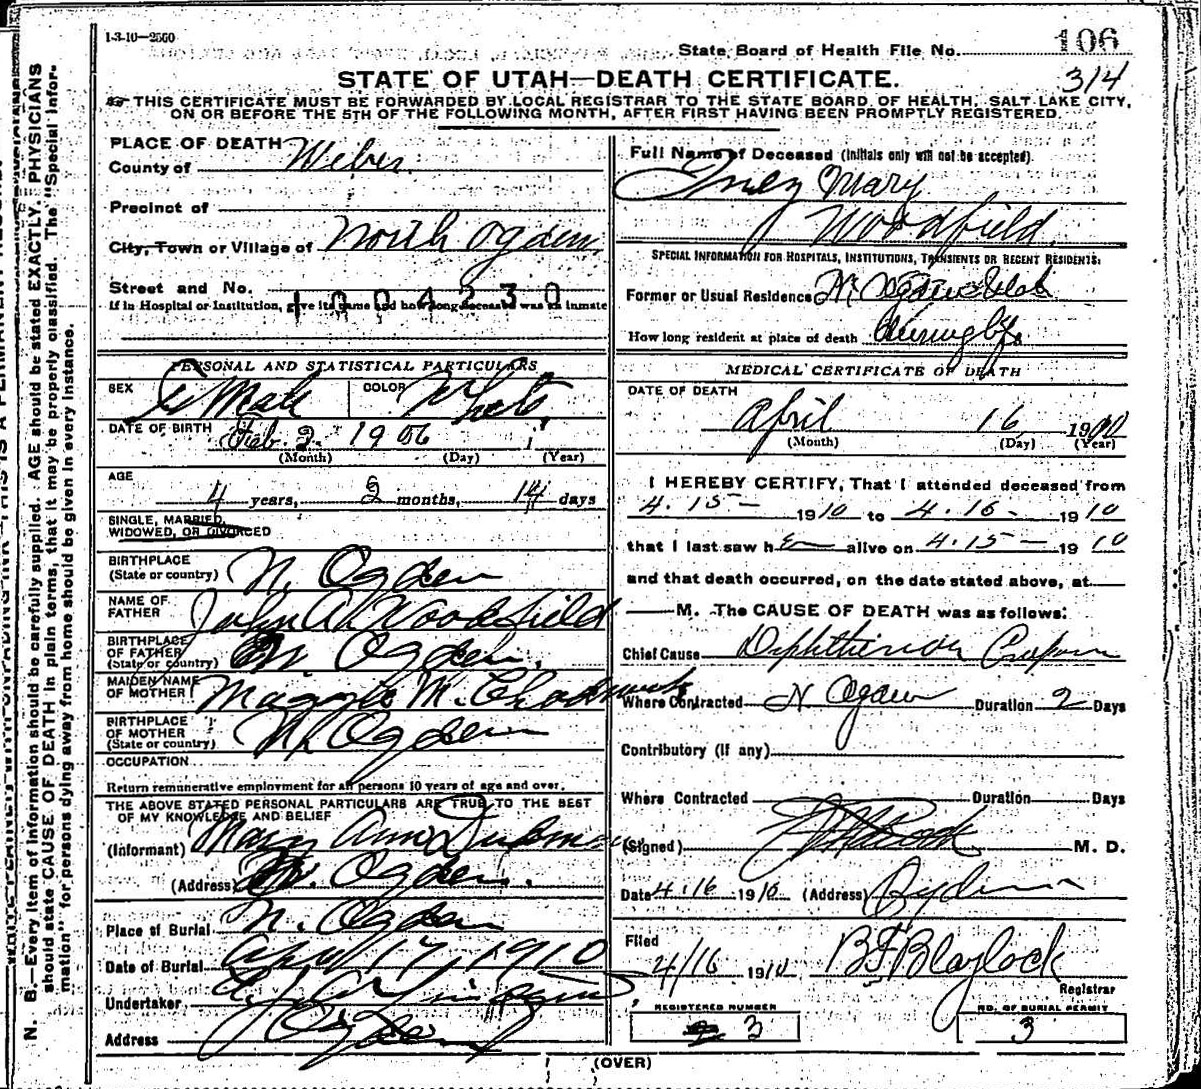 N. B.—Every item of information should be carefully supplied. AGE should be stated EXACTLY. PHYSICIANS
should state CAUSE OF DEATH in plain terms, that it may be properly classified. The "Special Infor-
mation" for persons dying away from home should be given in every instance.
1-3-10—2500
State Board of Health File No. 106
314
STATE OF UTAH—DEATH CERTIFICATE.
THIS CERTIFICATE MUST BE FORWARDED BY LOCAL REGISTRAR TO THE STATE BOARD OF HEALTH, SALT LAKE CITY,
ON OR BEFORE THE 5TH OF THE FOLLOWING MONTH, AFTER FIRST HAVING BEEN PROMPTLY REGISTERED.
PLACE OF DEATH
County of Weber
Precinct of
City, Town or Village of North Ogden
Street and No.
1004230
If in Hospital or Institution, give its name and how long deceased was an inmate
PERSONAL AND STATISTICAL PARTICULARS
SEX Female COLOR White
DATE OF BIRTH Feb. 2 1906
(Month) (Day) (Year)
AGE
4 years, 2 months, 14 days
SINGLE, MARRIED,
WIDOWED, OR DIVORCED
BIRTHPLACE
(State or country) N. Ogden
NAME OF
FATHER John A Woodfield
BIRTHPLACE
OF FATHER
(State or country) N. Ogden.
MAIDEN NAME
OF MOTHER Maggie M. Chadwick
BIRTHPLACE
OF MOTHER
(State or country) N. Ogden
OCCUPATION
Return remunerative employment for all persons 10 years of age and over.
THE ABOVE STATED PERSONAL PARTICULARS ARE TRUE TO THE BEST
OF MY KNOWLEDGE AND BELIEF
(Informant) Mary Ann
(Address) N. Ogden.
Place of Burial N. Ogden
Date of Burial April 17, 1910
Undertaker
Address Ogden
Full Name of Deceased (Initials only will not be accepted).
Mary
Woodfield
SPECIAL INFORMATION FOR HOSPITALS, INSTITUTIONS, TRANSIENTS OR RECENT RESIDENTS:
Former or Usual Residence N. Ogden Utah
How long resident at place of death During life
MEDICAL CERTIFICATE OF DEATH
DATE OF DEATH
April 16 1910
(Month) (Day) (Year)
I HEREBY CERTIFY, That I attended deceased from
4.15— 1910 to 4.16— 1910
that I last saw her alive on 4.15— 1910
and that death occurred, on the date stated above, at
M. The CAUSE OF DEATH was as follows:
Chief Cause Diphtheria Croup
Where Contracted N Ogden Duration 2 Days
Contributory (if any)
Where Contracted Duration Days
(Signed) M. D.
Date 4.16 1910 (Address) Ogden
Filed
4/16 1910 B F Blaylock
Registrar
REGISTERED NUMBER
3
NO. OF BURIAL PERMIT
3
(OVER)